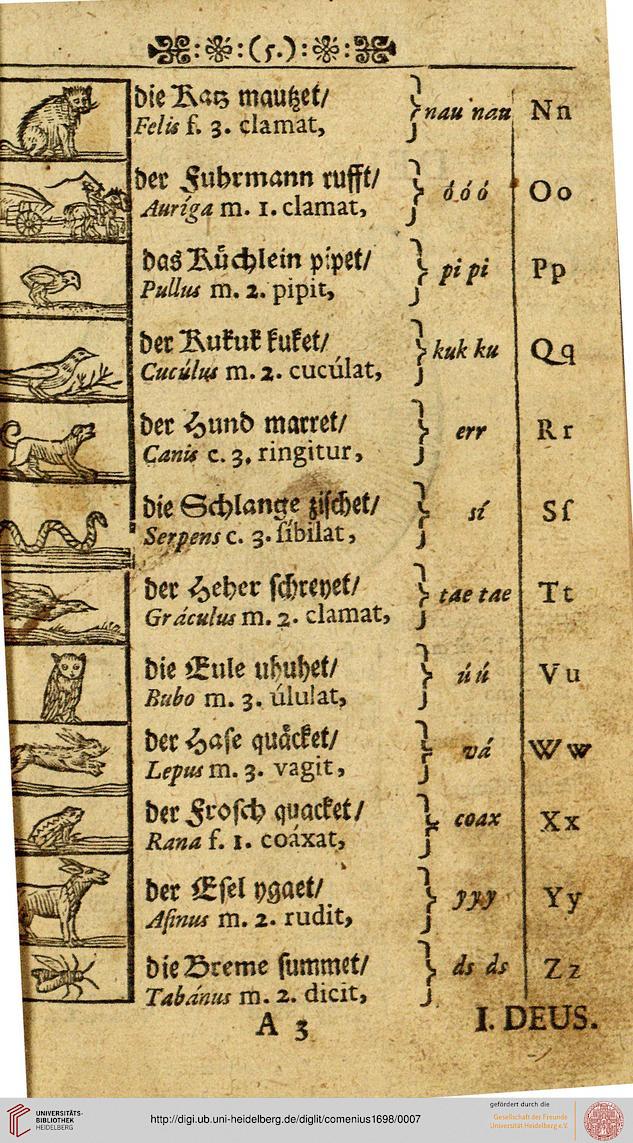 (5.)
die Katz mautzet/
Felis f. 3. clamat,
nau nau
Nn
der Fuhrmann rufft/
Auríga m. 1. clamat,
ó ó ó
Oo
das Küchlein pipet/
Pullus m. 2. pipit,
pi pi
Pp
der Kukuk kuket/
Cucúlus m. 2. cucúlat,
kuk ku
Qq
der Hund marret/
Canis c. 3. ringitur,
err
Rr
die Schlange zischet/
Serpens c. 3. síbilat,
sí
Sſ
der Heher schreyet/
Gráculus m. 2. clamat,
tae tae
Tt
die Eule uhuhet/
Bubo m. 3. úlulat,
ú ú
Vu
der Hase quäcket/
Lepus m. 3. vagit,
vá
Ww
der Frosch quacket/
Rana f. 1. coáxat,
coax
Xx
der Esel ygaet/
Asinus m. 2. rudit,
yyy
Yy
die Breme summet/
Tabánus m. 2. dicit,
ds ds
Zz
A 3
I. DEUS.
UNIVERSITÄTS-
BIBLIOTHEK
HEIDELBERG
http://digi.ub.uni-heidelberg.de/diglit/comenius1698/0007
gefördert durch die
Gesellschaft der Freunde
Universität Heidelberg e.V.